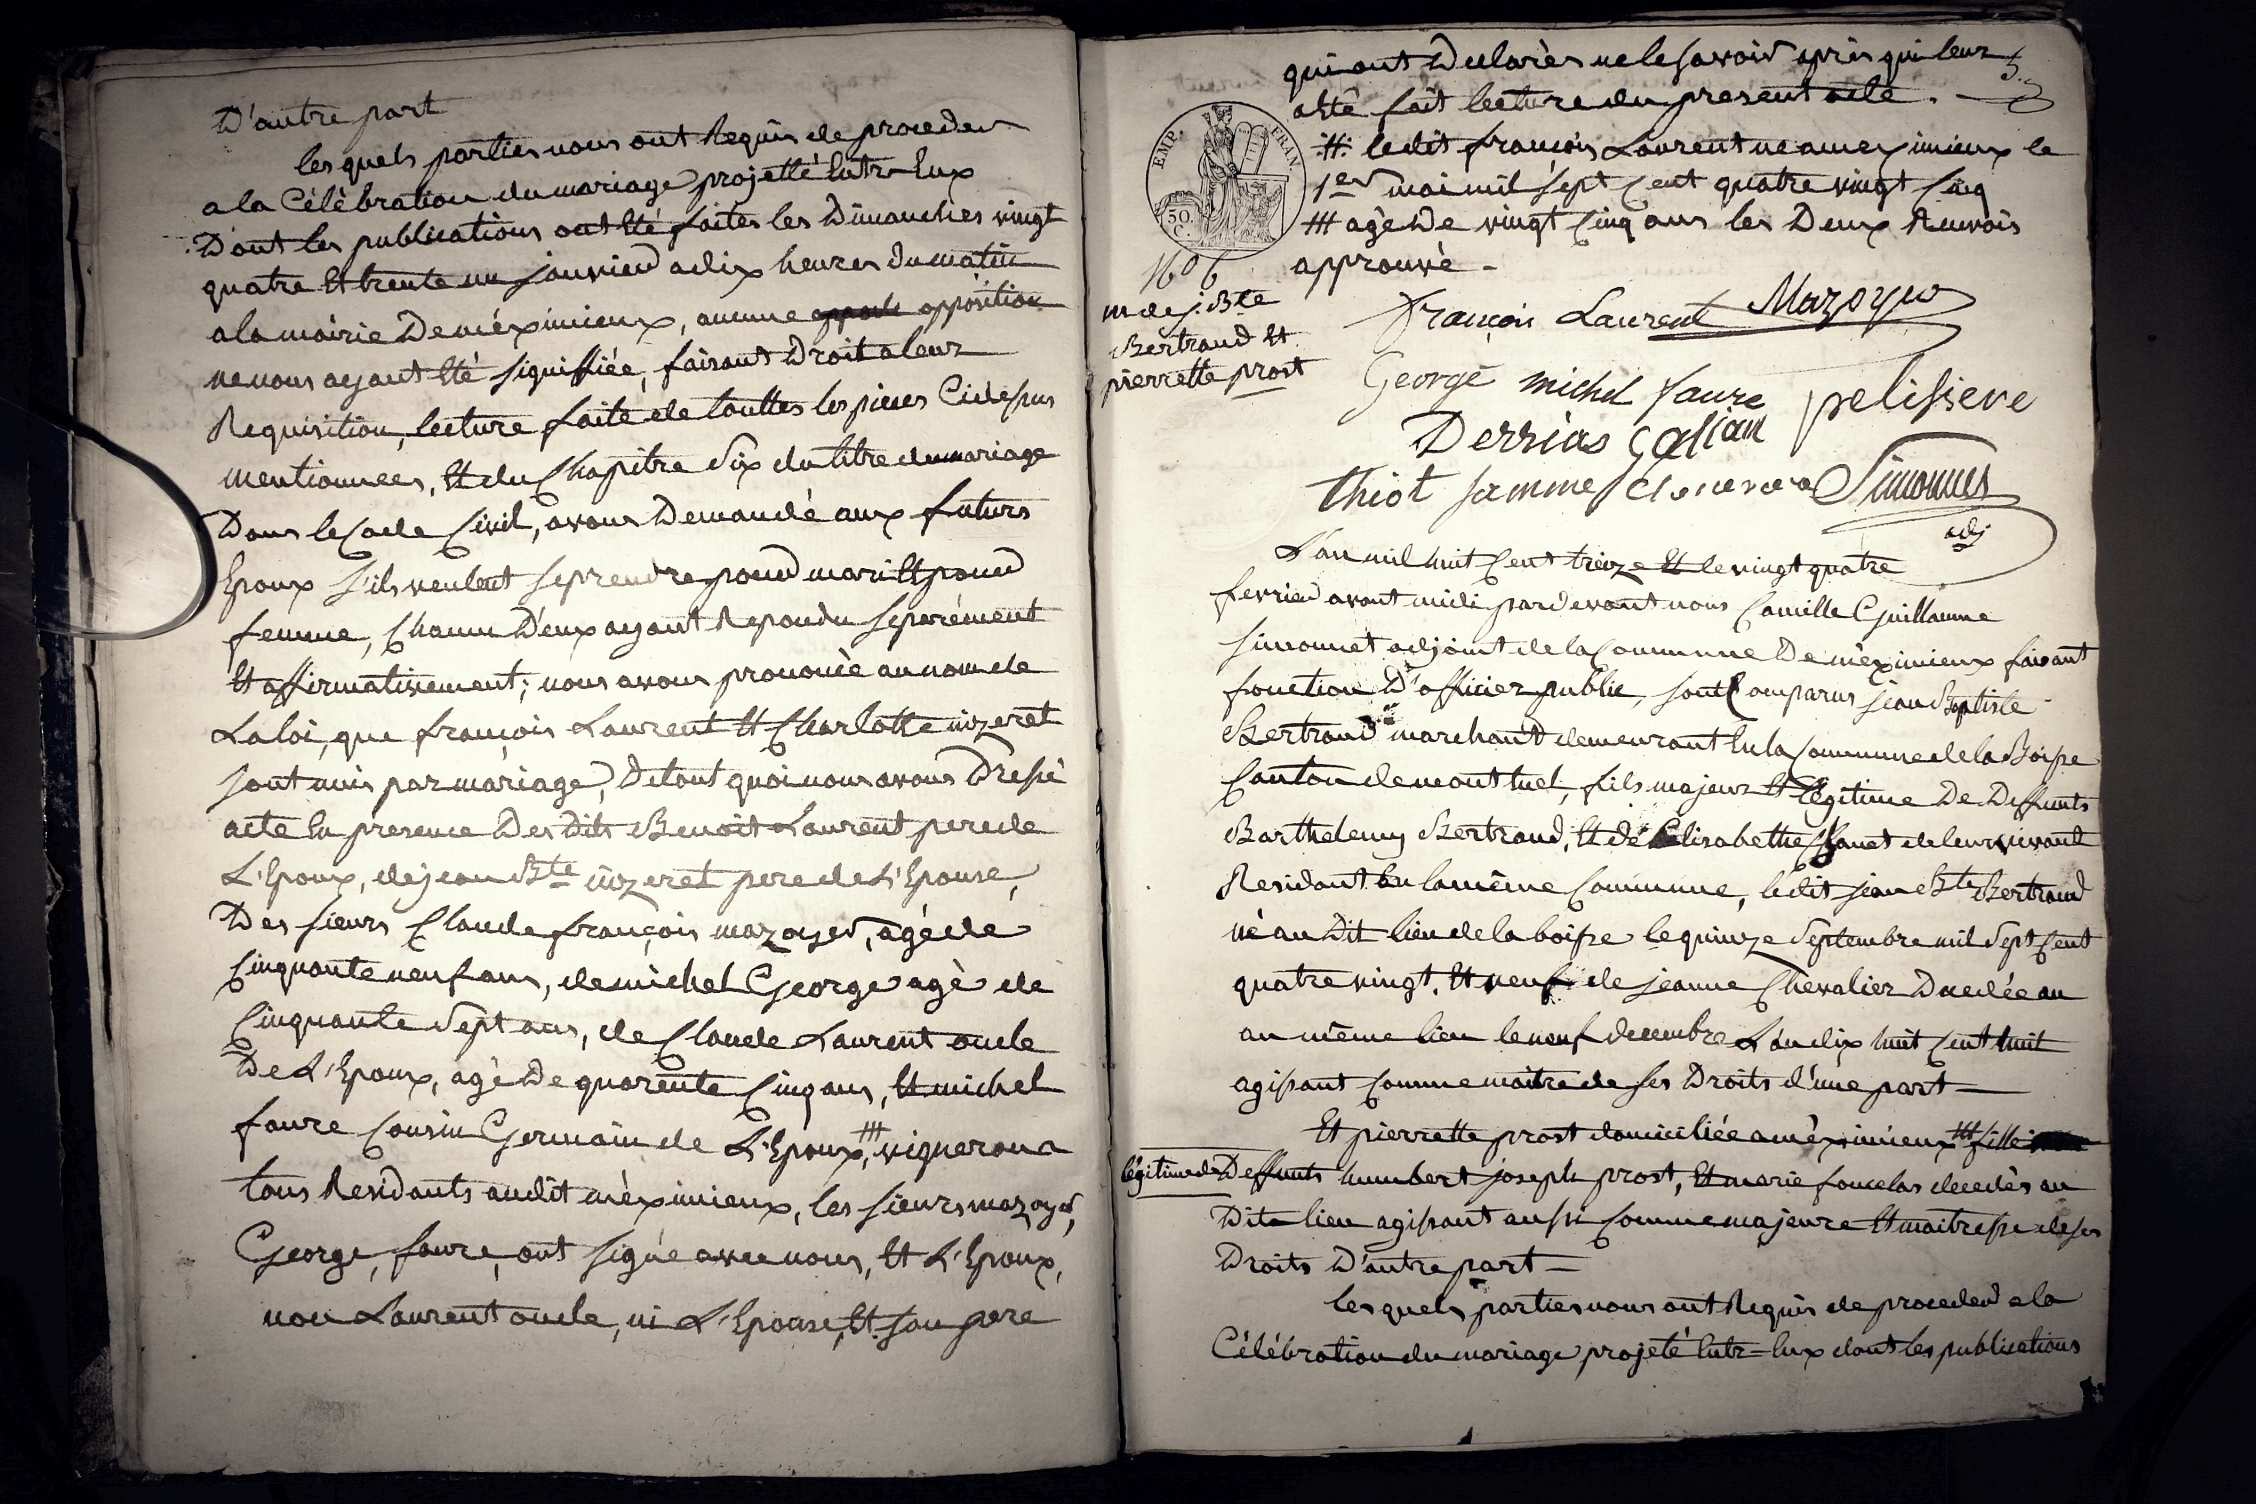 D'autre part
les quels parties nous ont Requis de proceder
a la Célèbration du mariage projetté Entr-Eux
Dont les publications ont Eté faites les Dimanches vingt
quatre Et trente un janvier a dix heures du matin
a la mairie De mèximieux, aucune opposition
ne nous ayant Eté signiffiée, faisant Droit a leur
Requisition, lecture faite de touttes les pieces Cidessus
mentionnees, Et du Chapitre Six du titre du mariage
Dans le Code Civil, avons Demandé aux futurs
Epoux s'ils veulent se prendre pour mari Et pour
femme, Chacun D'eux ayant Repondu separément
Et affirmativement; nous avons prononcè au nom de
La loi, que françois Laurent Et Charlotte nizeret
sont unis par mariage, De tout quoi nous avons Dressé
acte En presence Des Dits Benoit Laurent pere de
L'Epoux, de jean Bte nizeret pere de L'Epouse,
Des sieurs Claude françois mazoyer, agé de
Cinquante neuf ans, de michel George agè de
Cinquante Sept ans, de Claude Laurent oncle
De L'Epoux, agè De quarente Cinq ans, Et michel
faure Cousin Germain de L'Epoux, vigneron a
tous Residants audit mèximieux, les sieurs mazoyer,
George, faure, ont signé avec nous, Et L'Epoux,
non Laurent oncle, ni L'Epouse, Et son pere
qui ont Declarès ne le savoir après qui leur
a Eté fait lecture du present acte.
5.
EMP. FRAN.
50. C.
#: le dit françois Laurent ne a meximieux le
1er mai mil sept Cent quatre vingt Cinq
# agè De vingt Cinq ans les Deux Renvois
approuvè -
1606
m de j. Bte
Bertrand Et
pierrette prost
françois Laurent Mazoyer
George michel faure pelissere
Derrias galian
thiot Simonnet
adj
L'an mil huit Cent treize Et le vingt quatre
fevrier avant midi pardevant nous Camille Guillaume
simonnet adjoint de la Commune De mèximieux faisant
fonction D'officier public, sont Comparus jean Baptiste
Bertrand marchand demeurant En la Commune de la Boisse
Canton de montluel, fils majeur Et légitime De Deffunts
Barthelemy Bertrand, Et de Elisabethe Chanet de leur vivant
Residant En la même Commune, le dit jean Bte Bertrand
nè au Dit lieu de la boisse le quinze Septembre mil Sept Cent
quatre vingt, Et veuf de jeanne Chevalier Decedée au
au même lieu le neuf decembre L'an dix huit Cent huit
agissant Comme maitre de ses Droits d'une part —
Et pierrette prost domiciliée a mèximieux # fille
légitime de Deffunts humbert joseph prost, Et marie foucelas decedès au
Dit lieu agissant aussi Comme majeure Et maitresse de ses
Droits D'autre part —
les quels parties nous ont Requis de proceder a la
Célébration du mariage projeté Entr-Eux dont les publications